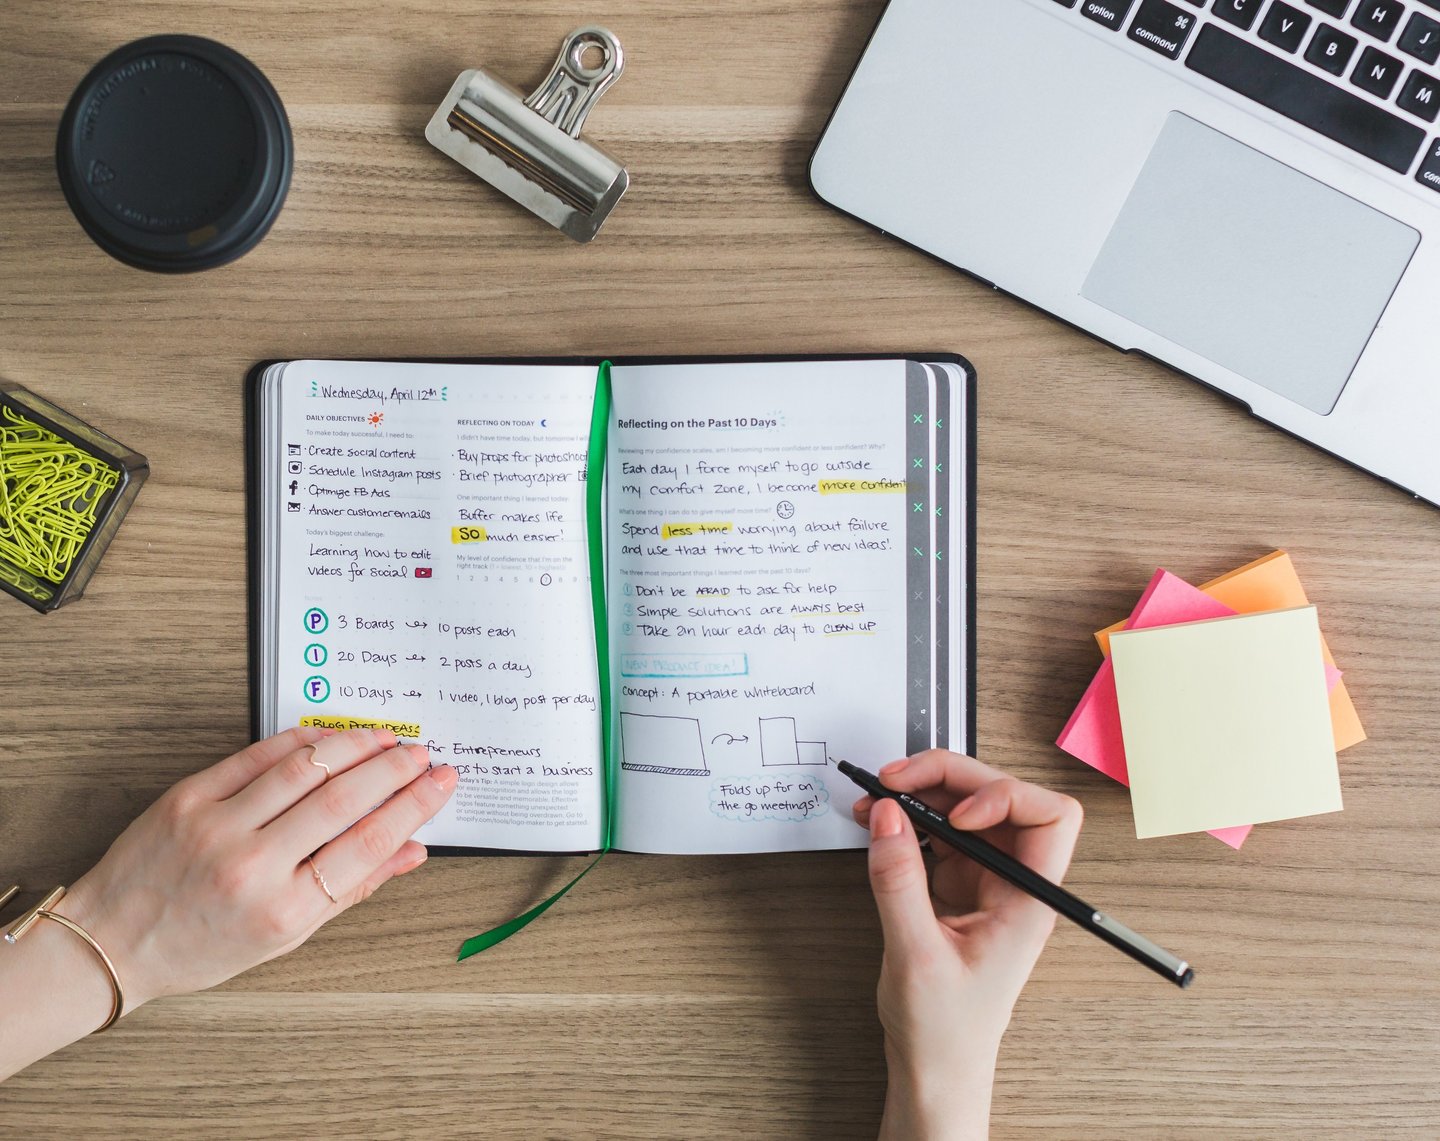 option
command
C
V
B
N
M
H
J
Wednesday, April 12th
DAILY OBJECTIVES
To make today successful, I need to:
· Create social content
· Schedule Instagram posts
· Optimize FB Ads
· Answer customer emails
Today's biggest challenge:
Learning how to edit
videos for social
Notes:
P 3 Boards 10 posts each
I 20 Days 2 posts a day
F 10 Days 1 video, 1 blog post per day
BLOG POST IDEAS:
for Entrepreneurs
to start a business
REFLECTING ON TODAY
I didn't have time today, but tomorrow I will
· Buy props for photoshoot
· Brief photographer
One important thing I learned today:
Buffer makes life
SO much easier!
My level of confidence that I'm on the
right track (1 = lowest, 10 = highest):
1 2 3 4 5 6 7 8 9
Today's Tip: A simple logo design allows
for easy recognition and allows the logo
to be versatile and memorable. Effective
logos feature something unexpected
or unique without being overdrawn. Go to
shopify.com/tools/logo-maker to get started.
Reflecting on the Past 10 Days
Reviewing my confidence scales, am I becoming more confident or less confident? Why?
Each day I force myself to go outside
my comfort zone, I become more confident
What's one thing I can do to give myself more time?
Spend less time worrying about failure
and use that time to think of new ideas!
The three most important things I learned over the past 10 days?
1 Don't be AFRAID to ask for help
2 Simple solutions are ALWAYS best
3 Take an hour each day to CLEAN UP
NEW PRODUCT IDEA!
Concept: A portable whiteboard
Folds up for on
the go meetings!